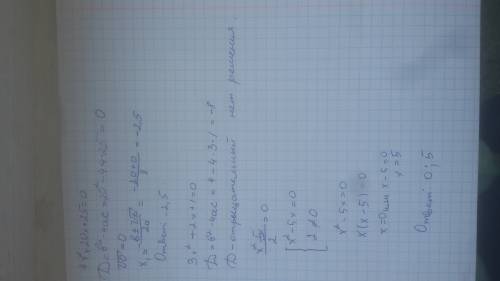 4x²+20x+25=0
D=b²-4ac=20²-4·4·25=0
√D=0
x₁=-b±√D/2a=-20+0/8=-2,5
Ответ -2,5
3x²+2x+1=0
D=b²-4ac=4-4·3·1=-8
D-отрицательный нет решения.
=0
x²-5x=0
2≠0
x²-5x=0
x(x-5)=0
x=0 или x-5=0
x=5
Ответ 0;5